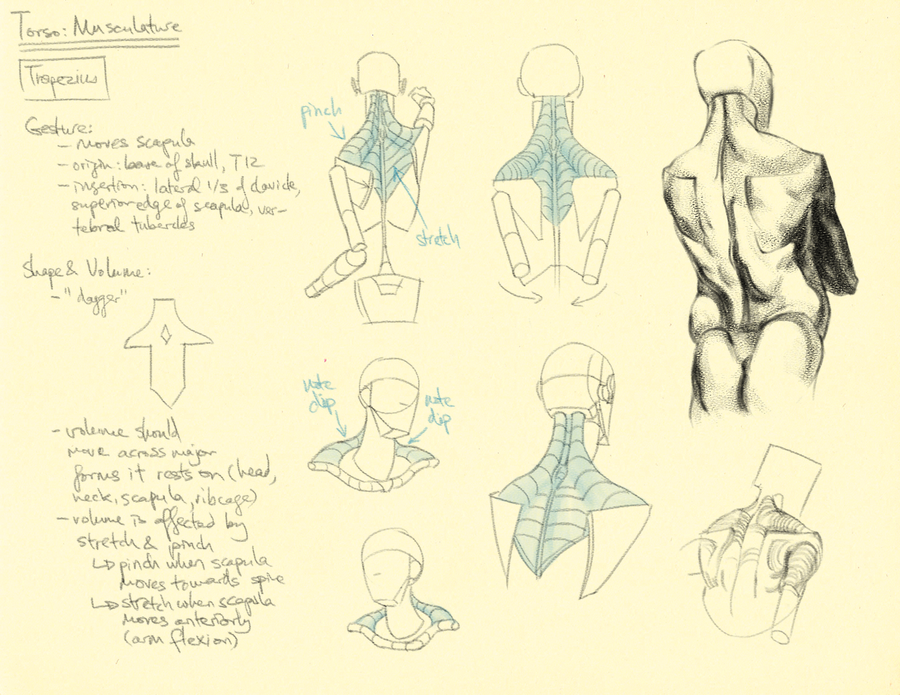 Torso: Musculature
Trapezius
Gesture:
- moves scapula
- origin: base of skull, T12
- insertion: lateral 1/3 of clavicle,
superior edge of scapula, ver-
tebral tubercles
Shape & Volume:
- "dagger"
- volume should
move across major
forms it rests on (head,
neck, scapula, ribcage)
- volume is affected by
stretch & pinch
↳ pinch when scapula
moves towards spine
↳ stretch when scapula
moves anteriorly
(arm flexion)
pinch
stretch
note
dip
note
dip